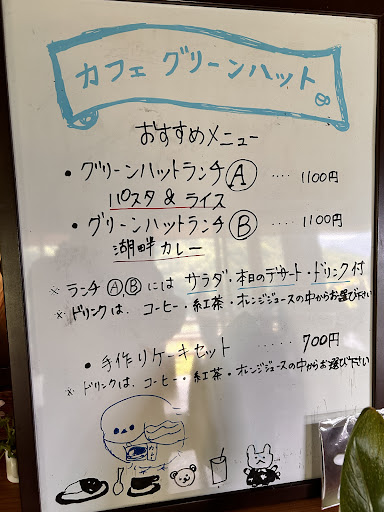 カフェ グリーンハット
おすすめメニュー
・グリーンハットランチ Ⓐ ‥‥ 1100円
パスタ & ライス
・グリーンハットランチ Ⓑ ‥‥ 1100円
湖畔カレー
※ ランチ Ⓐ,Ⓑ には サラダ・本日のデザート・ドリンク付
※ ドリンクは、コーヒー・紅茶・オレンジジュースの中からお選び下さい
・手作りケーキセット ‥‥‥ 700円
※ ドリンクは、コーヒー・紅茶・オレンジジュースの中からお選び下さい